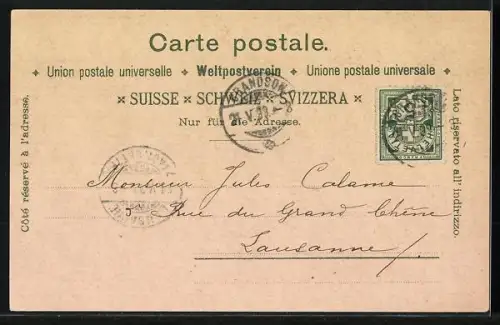 Carte postale.
Union postale universelle + Weltpostverein + Unione postale universale +
× SUISSE × SCHWEIZ × SVIZZERA ×
Nur für die Adresse.
Côté réservé à l'adresse.
Lato riservato all' indirizzo.
GRANDSON
Monsieur Jules Calame
Rue du Grand Chêne
Lausanne /